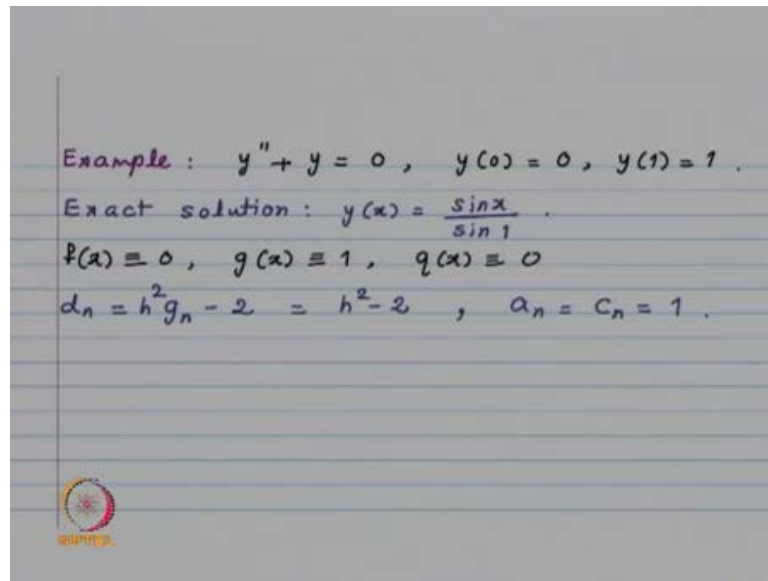 Example : y'' + y = 0 , y(0) = 0 , y(1) = 1 .
Exact solution : y(x) = sin x / sin 1 .
f(x) ≡ 0 , g(x) ≡ 1 , q(x) ≡ 0
dₙ = h²gₙ - 2 = h² - 2 , aₙ = cₙ = 1 .